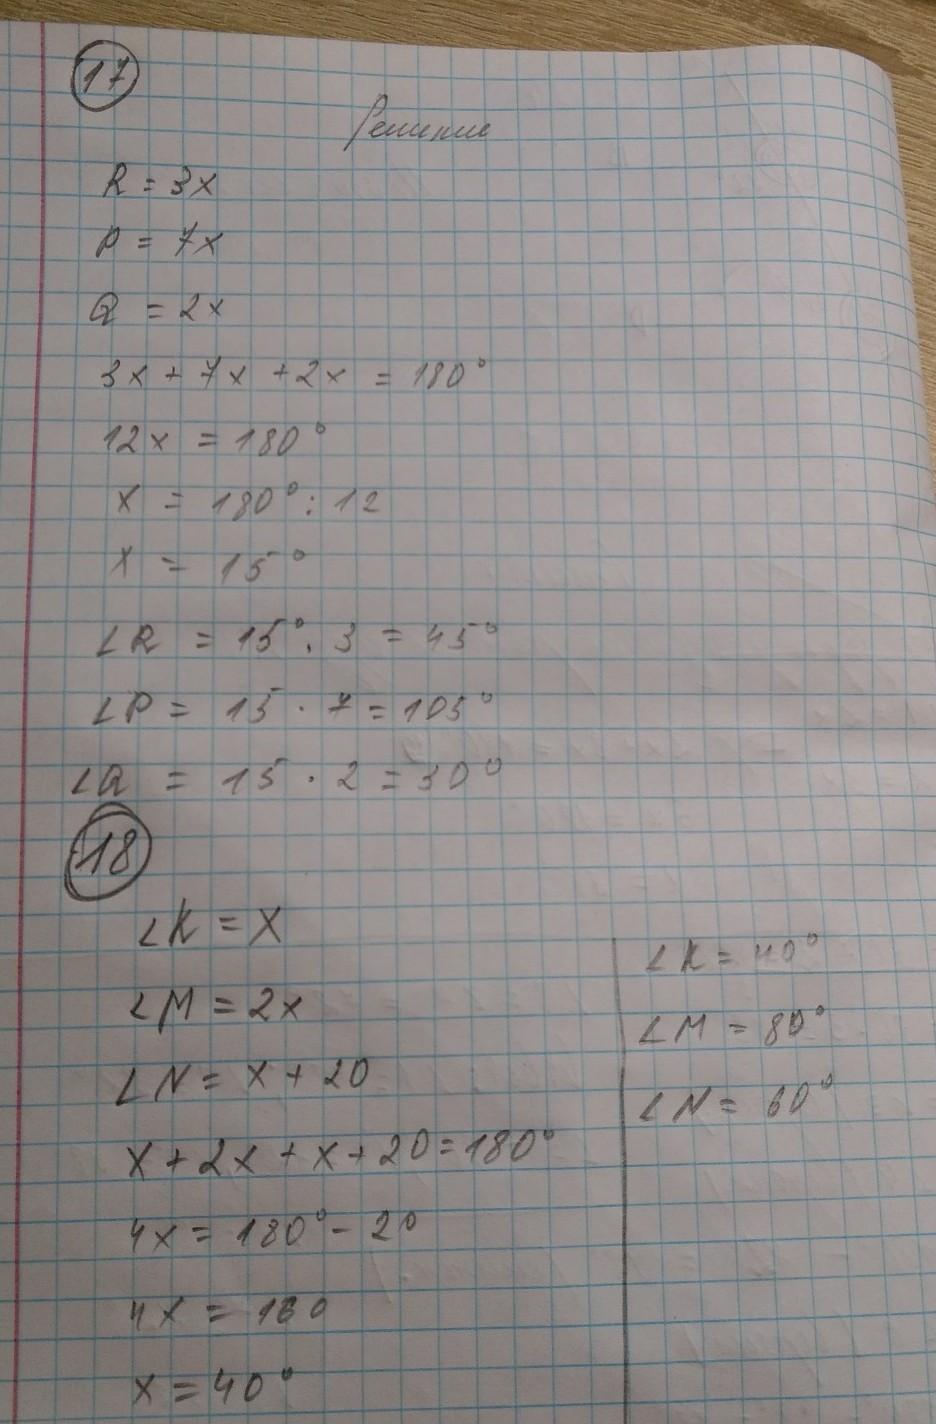 17
Решение
R = 3x
P = 7x
Q = 2x
3x + 7x + 2x = 180°
12x = 180°
x = 180° : 12
x = 15°
∠R = 15° · 3 = 45°
∠P = 15 · 7 = 105°
∠Q = 15 · 2 = 30°
18
∠K = x
∠M = 2x
∠N = x + 20
x + 2x + x + 20 = 180°
4x = 180° - 20
4x = 160
x = 40°
∠K = 40°
∠M = 80°
∠N = 60°